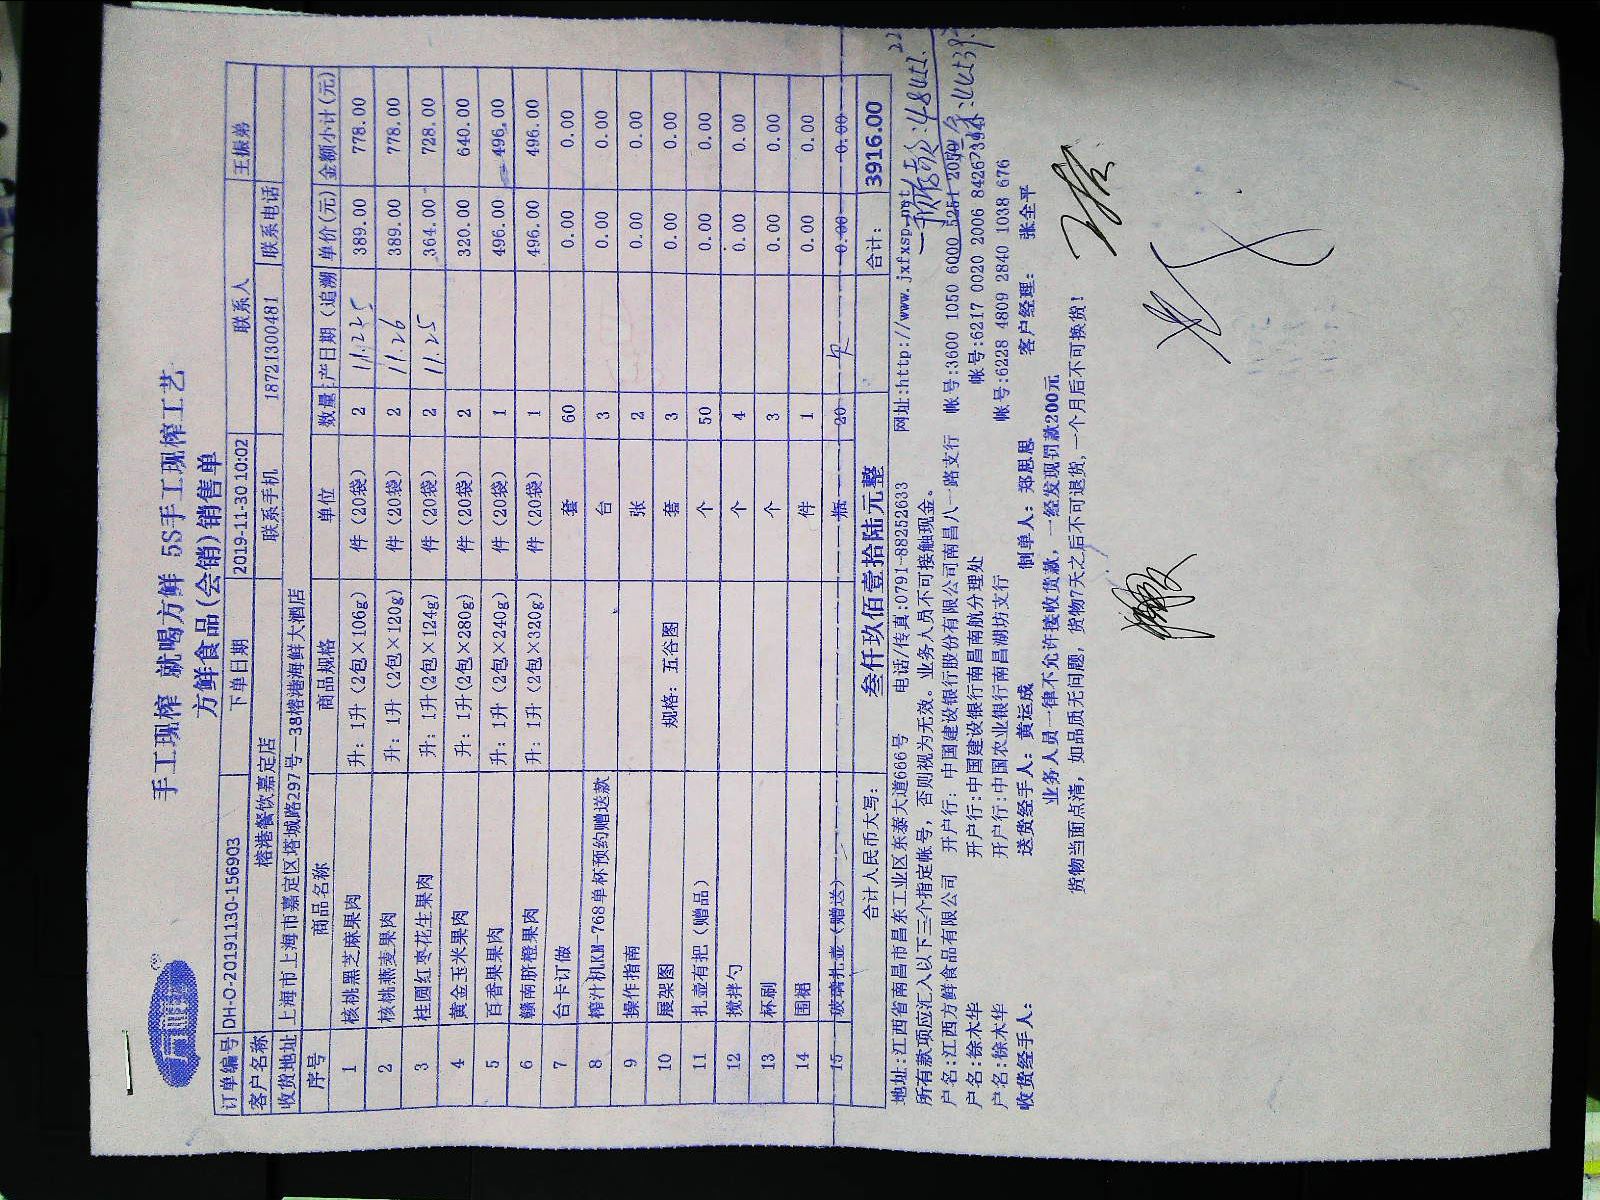 手工现榨 就喝方鲜 5S手工现榨工艺
方鲜食品(会销)销售单
订单编号 DH-O-20191130-156903 下单日期 2019-11-30 10:02 联系人 王振弟
客户名称 榕港餐饮嘉定店 联系手机 18721300481 联系电话
收货地址 上海市上海市嘉定区塔城路297号-38榕港海鲜大酒店
序号 商品名称 商品规格 单位 数量 产日期（追溯 单价(元) 金额小计(元)
1 核桃黑芝麻果肉 升：1升（2包×106g） 件（20袋） 2 11.25 389.00 778.00
2 核桃燕麦果肉 升：1升（2包×120g） 件（20袋） 2 11.26 389.00 778.00
3 桂圆红枣花生果肉 升：1升(2包×124g) 件（20袋） 2 11.25 364.00 728.00
4 黄金玉米果肉 升：1升(2包×280g) 件（20袋） 2 320.00 640.00
5 百香果果肉 升：1升（2包×240g） 件（20袋） 1 496.00 496.00
6 赣南脐橙果肉 升：1升（2包×320g） 件（20袋） 1 496.00 496.00
7 台卡订做 套 60 0.00 0.00
8 榨汁机KM-768单杯预约赠送款 台 3 0.00 0.00
9 操作指南 张 2 0.00 0.00
10 展架图 规格：五谷图 套 3 0.00 0.00
11 扎壶有把（赠品） 个 50 0.00 0.00
12 搅拌勺 个 4 0.00 0.00
13 杯刷 个 3 0.00 0.00
14 围裙 件 1 0.00 0.00
15 玻璃扎壶（赠送） 瓶 20 欠 0.00 0.00
合计人民币大写： 叁仟玖佰壹拾陆元整 合计： 3916.00
地址:江西省南昌市昌东工业区东泰大道666号 电话/传真:0791-88252633 网址:http://www.jxfxsp.net
所有款项应汇入以下三个指定帐号，否则视为无效。业务人员不可接触现金。
户名:江西方鲜食品有限公司 开户行：中国建设银行股份有限公司南昌八一路支行 帐号:3600 1050 6000 5251 2050
户名:徐木华 开户行:中国建设银行南昌南航分理处 帐号:6217 0020 2006 8426739
户名:徐木华 开户行:中国农业银行南昌湖坊支行 帐号:6228 4809 2840 1038 676
收货经手人： 送货经手人：黄运成 制单人：郑思思 客户经理： 张全平
业务人员一律不允许接收货款，一经发现罚款200元
货物当面点清，如品质无问题，货物7天之后不可退货,一个月后不可换货!